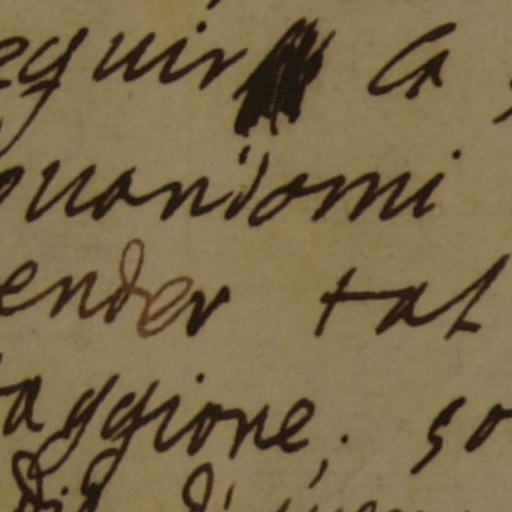 eguir la
quandomi
ender tal
taggione; so